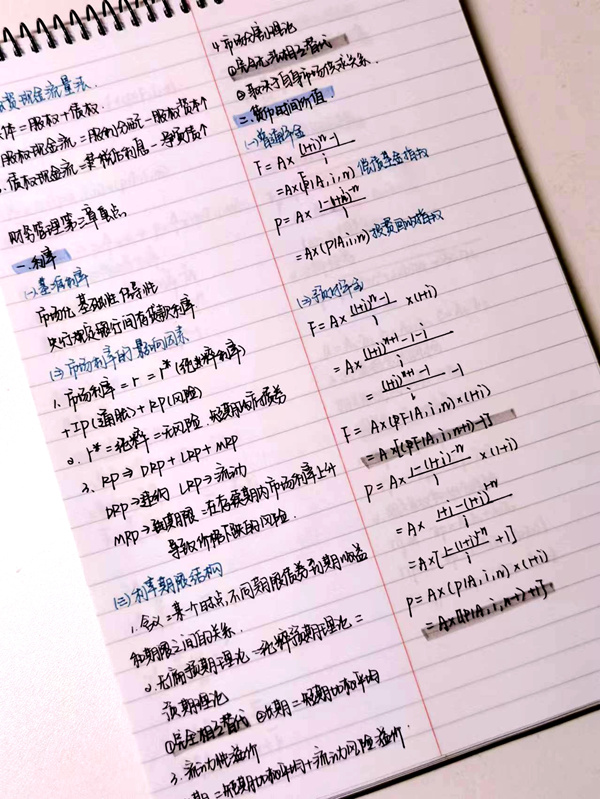 资现金流量法
体=股权+债权
股权现金流=股利分配-股权资本
债权现金流=其税后利息-
财务管理第三章重点
一.利率
(一)基准利率
市场化 基础性 传导性
央行规定银行间存贷款利率
(二)市场利率的影响因素
1.市场利率=r=r*(纯粹利率)
+IP(通胀)+RP(风险)
2. r*=纯粹=无风险.短期政府债券
3. RP⇒DRP+LRP+MRP
DRP⇒违约 LRP⇒流动
MRP⇒到期期限=在存续期内市场利率上升
导致价格下跌的风险.
(三)利率期限结构
1.含义=某个时点,不同期限债券到期收益
和期限之间的关系.
2.无偏预期理论=纯粹预期理论=
预期理论
①完全相互替代 ②长期=短期几何平均
3.流动性溢价
期=短期几何平均+流动风险溢价.
4市场分割理论
①完全无法相互替代
②取决于自身市场供求关系.
二.货币时间价值
(一)普通年金
F=A×((1+i)^n-1)/i
=A×(F|A,i,n) 偿债基金
P=A×(1-(1+i)^-n)/i
=A×(P|A,i,n) 投资回收
(二)预付年金
F=A×((1+i)^n-1)/i ×(1+i)
=A×((1+i)^n+1-1-i)/i
=((1+i)^n+1)/i -1
F=A×(F|A,i,n)×(1+i)
=A×[(F|A,i,n+1)-1]
P=A×(1-(1+i)^-n)/i ×(1+i)
=A×
=A×
P=A×(P|A,i,n)×(1+i)
=A×[(P|A,i,n-1)+1]